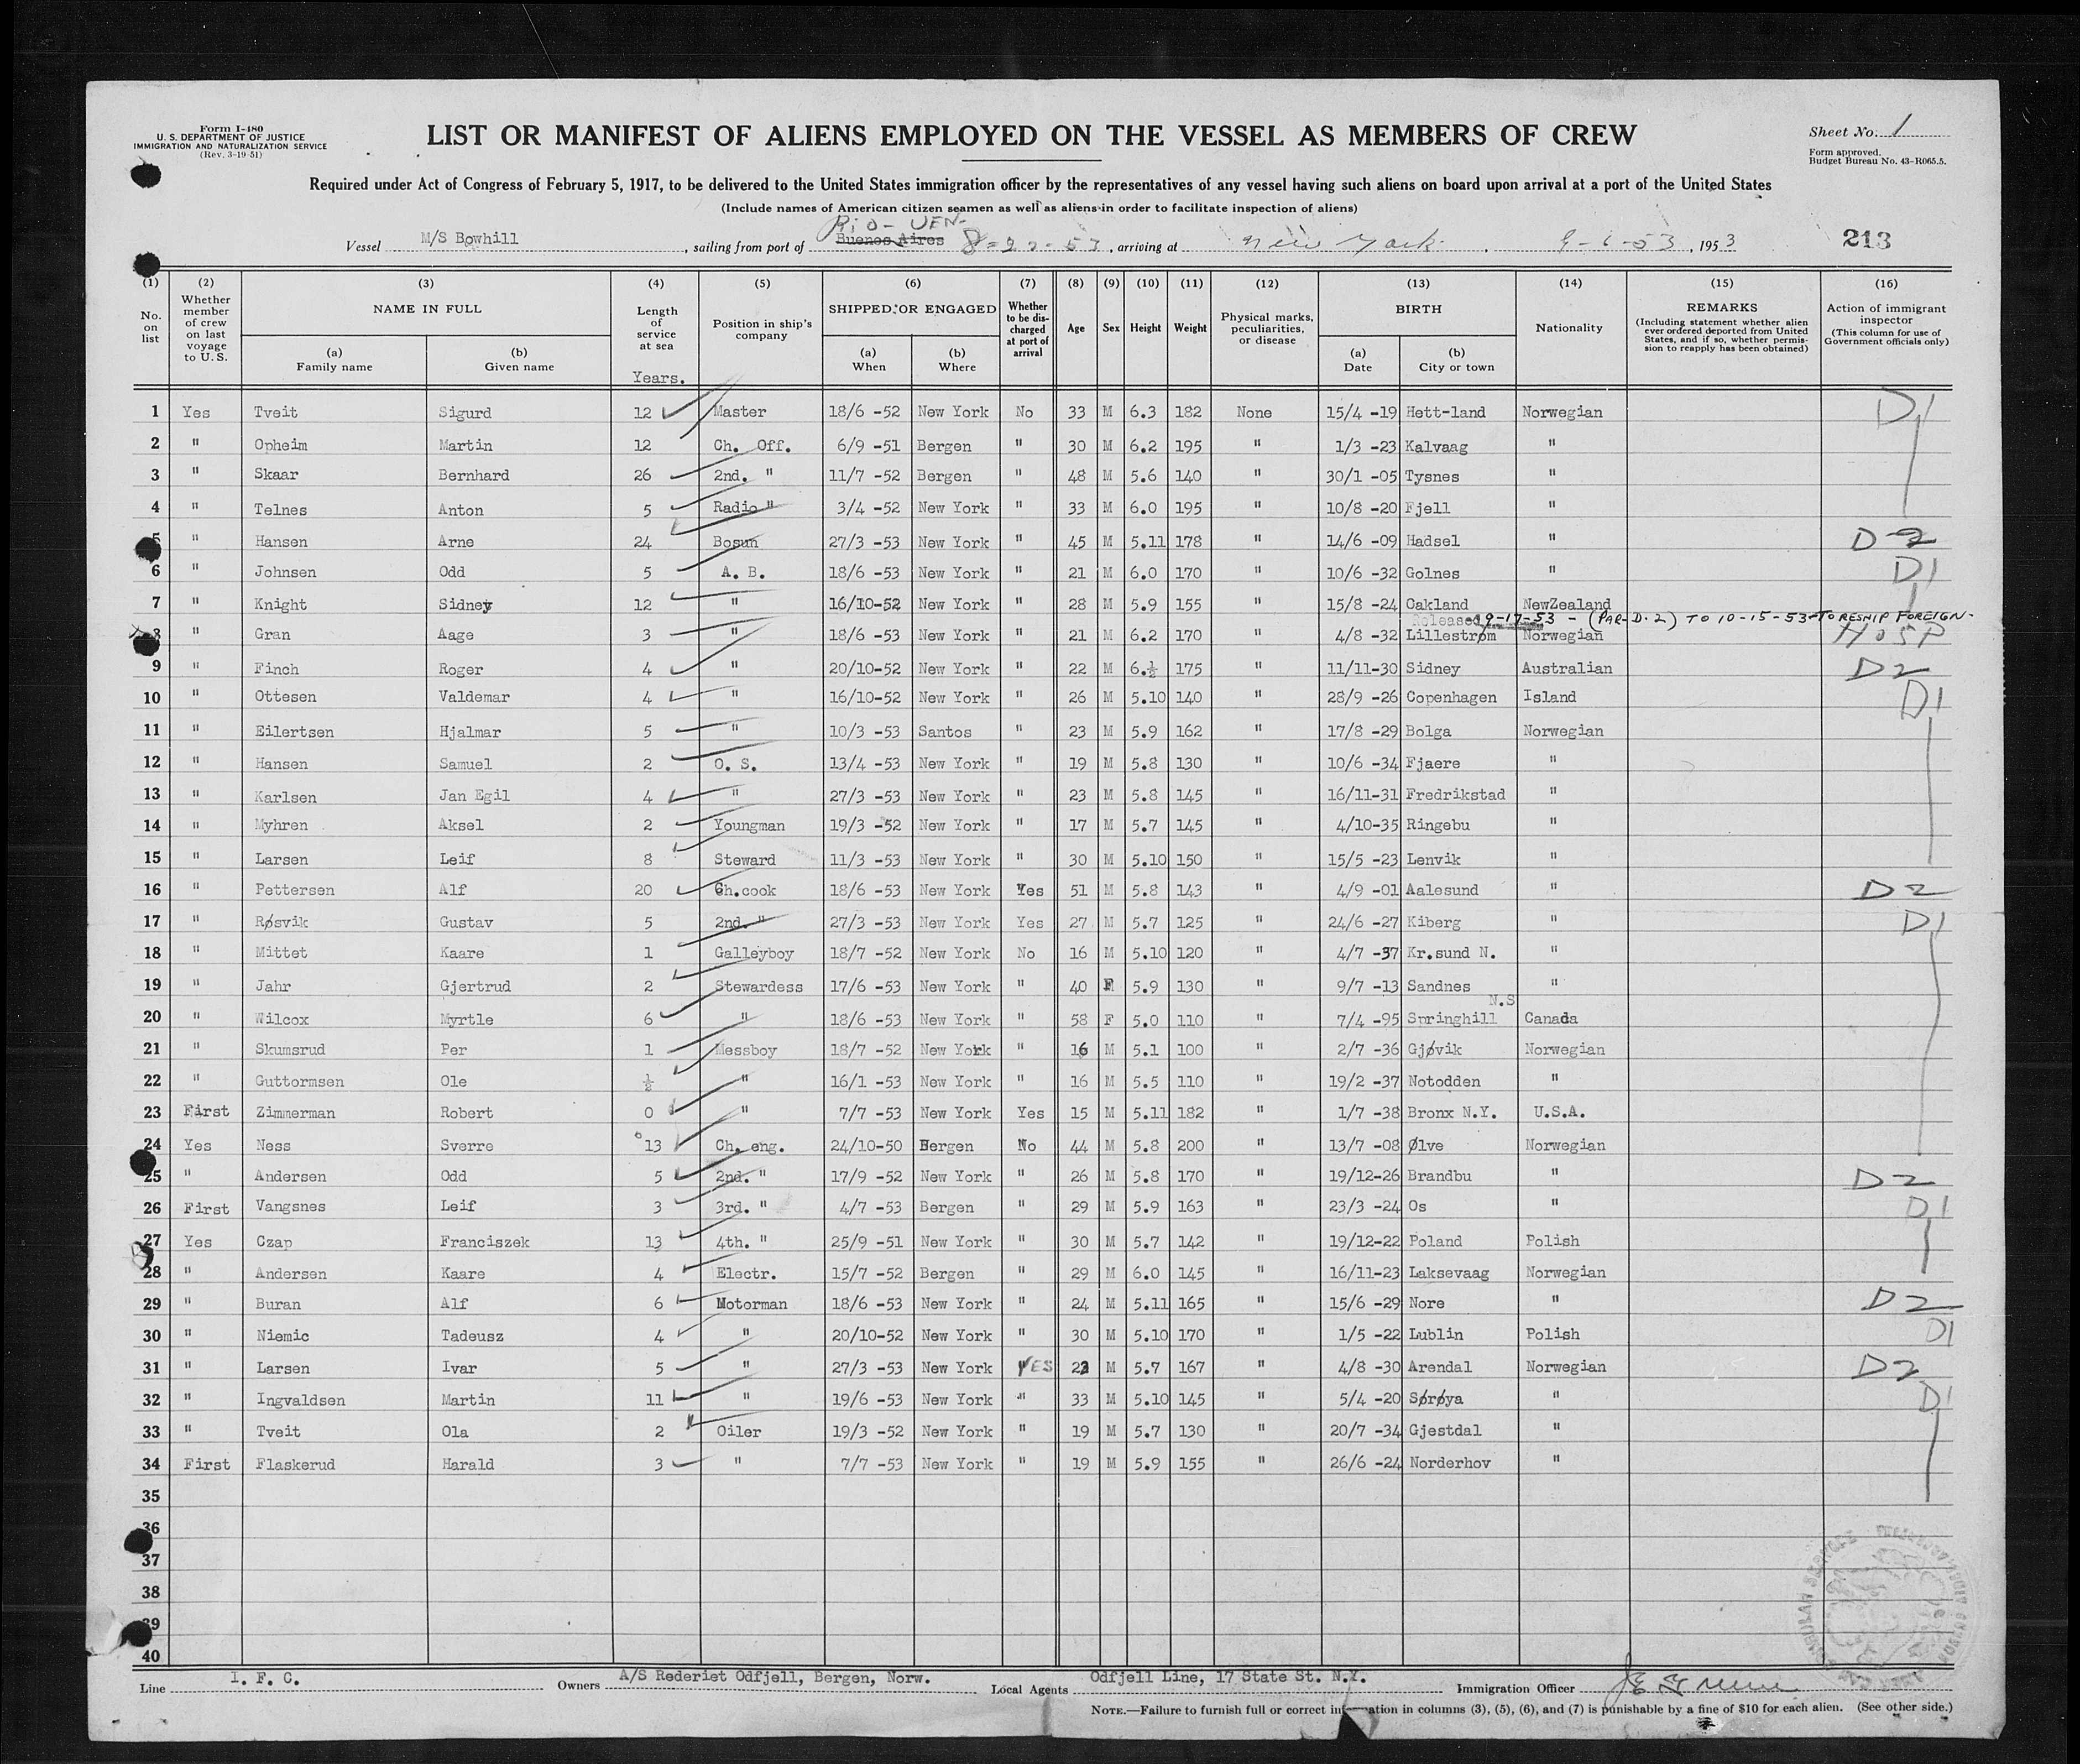 Form I-480
U. S. DEPARTMENT OF JUSTICE
IMMIGRATION AND NATURALIZATION SERVICE
(Rev. 3-19-51)
LIST OR MANIFEST OF ALIENS EMPLOYED ON THE VESSEL AS MEMBERS OF CREW
Sheet No. 1
Form approved.
Budget Bureau No. 43-R065.5.
Required under Act of Congress of February 5, 1917, to be delivered to the United States immigration officer by the representatives of any vessel having such aliens on board upon arrival at a port of the United States
(Include names of American citizen seamen as well as aliens in order to facilitate inspection of aliens)
Vessel M/S Bowhill, sailing from port of Buenos Aires 8-22-53, arriving at New York, 9-6-53, 1953
213
(1) No. on list (2) Whether member of crew on last voyage to U. S. (3) NAME IN FULL (a) Family name (b) Given name (4) Length of service at sea Years. (5) Position in ship's company (6) SHIPPED OR ENGAGED (a) When (b) Where (7) Whether to be discharged at port of arrival (8) Age (9) Sex (10) Height (11) Weight (12) Physical marks, peculiarities, or disease (13) BIRTH (a) Date (b) City or town (14) Nationality (15) REMARKS (Including statement whether alien ever ordered deported from United States, and if so, whether permission to reapply has been obtained) (16) Action of immigrant inspector (This column for use of Government officials only)
1 Yes Tveit Sigurd 12 Master 18/6 -52 New York No 33 M 6.3 182 None 15/4 -19 Hett-land Norwegian D1
2 " Opheim Martin 12 Ch. Off. 6/9 -51 Bergen " 30 M 6.2 195 " 1/3 -23 Kalvaag "
3 " Skaar Bernhard 26 2nd. " 11/7 -52 Bergen " 48 M 5.6 140 " 30/1 -05 Tysnes "
4 " Telnes Anton 5 Radio " 3/4 -52 New York " 33 M 6.0 195 " 10/8 -20 Fjell "
5 " Hansen Arne 24 Bosun 27/3 -53 New York " 45 M 5.11 178 " 14/6 -09 Hadsel " D-2
6 " Johnsen Odd 5 A. B. 18/6 -53 New York " 21 M 6.0 170 " 10/6 -32 Golnes " D1
7 " Knight Sidney 12 " 16/10-52 New York " 28 M 5.9 155 " 15/8 -24 Oakland NewZealand
Released 9-17-53 - (PAR-D-2) TO 10-15-53-TO RESHIP FOREIGN-
8 " Gran Aage 3 " 18/6 -53 New York " 21 M 6.2 170 " 4/8 -32 Lillestrøm Norwegian HOSP
9 " Finch Roger 4 " 20/10-52 New York " 22 M 6.½ 175 " 11/11-30 Sidney Australian D2
10 " Ottesen Valdemar 4 " 16/10-52 New York " 26 M 5.10 140 " 28/9 -26 Copenhagen Island D1
11 " Eilertsen Hjalmar 5 " 10/3 -53 Santos " 23 M 5.9 162 " 17/8 -29 Bolga Norwegian
12 " Hansen Samuel 2 O. S. 13/4 -53 New York " 19 M 5.8 130 " 10/6 -34 Fjaere "
13 " Karlsen Jan Egil 4 " 27/3 -53 New York " 23 M 5.8 145 " 16/11-31 Fredrikstad "
14 " Myhren Aksel 2 Youngman 19/3 -52 New York " 17 M 5.7 145 " 4/10-35 Ringebu "
15 " Larsen Leif 8 Steward 11/3 -53 New York " 30 M 5.10 150 " 15/5 -23 Lenvik "
16 " Pettersen Alf 20 Ch.cook 18/6 -53 New York Yes 51 M 5.8 143 " 4/9 -01 Aalesund " D2
17 " Røsvik Gustav 5 2nd. " 27/3 -53 New York Yes 27 M 5.7 125 " 24/6 -27 Kiberg " D1
18 " Mittet Kaare 1 Galleyboy 18/7 -52 New York No 16 M 5.10 120 " 4/7 -37 Kr.sund N. "
19 " Jahr Gjertrud 2 Stewardess 17/6 -53 New York " 40 F 5.9 130 " 9/7 -13 Sandnes "
20 " Wilcox Myrtle 6 " 18/6 -53 New York " 58 F 5.0 110 " 7/4 -95 Springhill N.S Canada
21 " Skumsrud Per 1 Messboy 18/7 -52 New York " 16 M 5.1 100 " 2/7 -36 Gjøvik Norwegian
22 " Guttormsen Ole ½ " 16/1 -53 New York " 16 M 5.5 110 " 19/2 -37 Notodden "
23 First Zimmerman Robert 0 " 7/7 -53 New York Yes 15 M 5.11 182 " 1/7 -38 Bronx N.Y. U.S.A.
24 Yes Ness Sverre 13 Ch. eng. 24/10-50 Bergen No 44 M 5.8 200 " 13/7 -08 Ølve Norwegian
25 " Andersen Odd 5 2nd. " 17/9 -52 New York " 26 M 5.8 170 " 19/12-26 Brandbu " D2
26 First Vangsnes Leif 3 3rd. " 4/7 -53 Bergen " 29 M 5.9 163 " 23/3 -24 Os " D1
27 Yes Czap Franciszek 13 4th. " 25/9 -51 New York " 30 M 5.7 142 " 19/12-22 Poland Polish
28 " Andersen Kaare 4 Electr. 15/7 -52 Bergen " 29 M 6.0 145 " 16/11-23 Laksevaag Norwegian
29 " Buran Alf 6 Motorman 18/6 -53 New York " 24 M 5.11 165 " 15/6 -29 Nore " D2
30 " Niemic Tadeusz 4 " 20/10-52 New York " 30 M 5.10 170 " 1/5 -22 Lublin Polish D1
31 " Larsen Ivar 5 " 27/3 -53 New York YES 22 M 5.7 167 " 4/8 -30 Arendal Norwegian D2
32 " Ingvaldsen Martin 11 " 19/6 -53 New York " 33 M 5.10 145 " 5/4 -20 Sørøya " D1
33 " Tveit Ola 2 Oiler 19/3 -52 New York " 19 M 5.7 130 " 20/7 -34 Gjestdal "
34 First Flaskerud Harald 3 " 7/7 -53 New York " 19 M 5.9 155 " 26/6 -24 Norderhov "
35
36
37
38
39
40
Line I. F. C. Owners A/S Rederiet Odfjell, Bergen, Norw. Local Agents Odfjell Line, 17 State St. N.Y. Immigration Officer
NOTE.—Failure to furnish full or correct information in columns (3), (5), (6), and (7) is punishable by a fine of $10 for each alien. (See other side.)